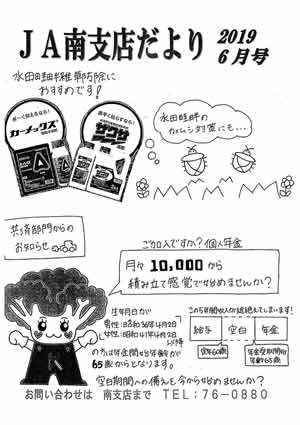 JA南支店だより 2019
6月号
水田畦畔雑草防除に
おすすめです!
カーメックス
ザクサ
水田畦畔の
カメムシ対策にも…
共済部門からの
お知らせ
ご加入ですか?個人年金
月々 10,000から
積み立て感覚で始めませんか?
生年月日が
男性:昭和36年4月2日
女性:昭和41年4月2日
以降
の方は年金開始年齢が
65歳からとなります。
この5年間収入が途絶えてしまいます!
給与 空白 年金
定年60歳
年金受取開始
年齢65歳
空白期間への備えを今から始めませんか?
お問い合わせは 南支店まで TEL:76-0880